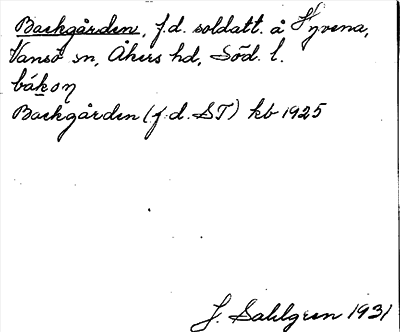 Backgården, f.d. soldatt. å Hyvena,
Vansö sn, Åkers hd, Söd. l.
Backgården (f.d. ST) kb 1925
J. Sahlgren 1931